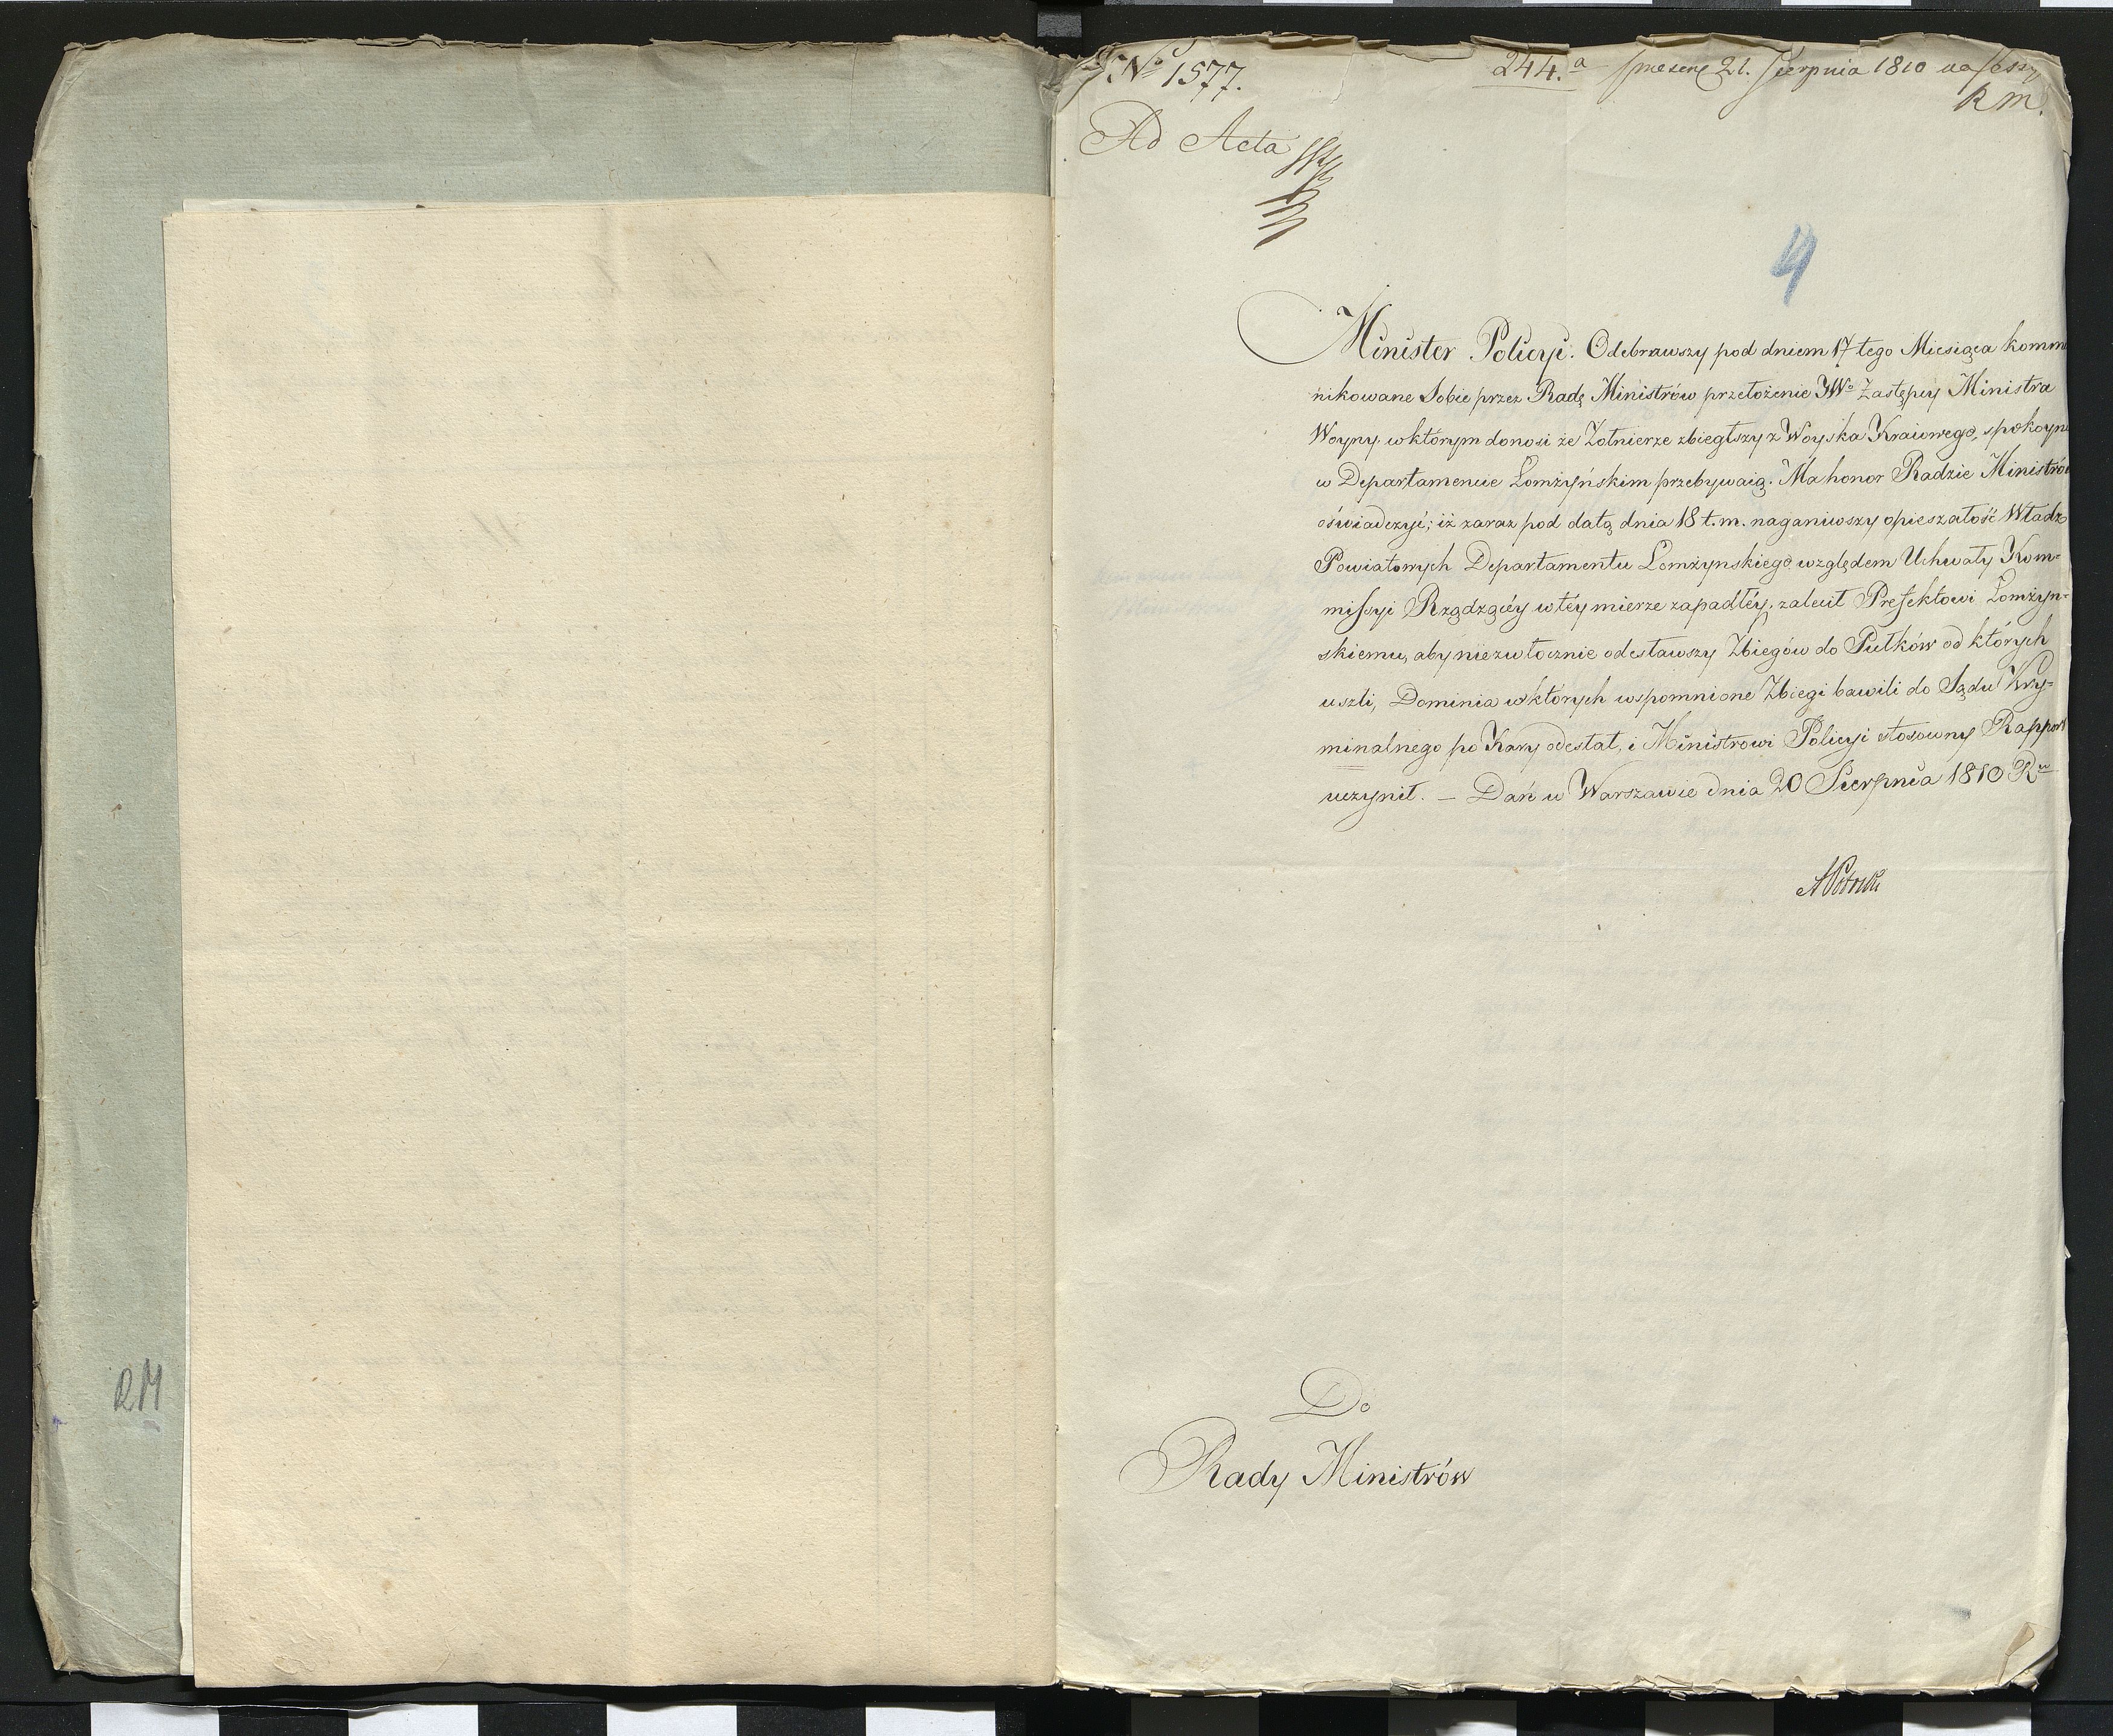 No 1577.
244.a
21. Sierpnia 1810 na Sessy
R M.
Ad Acta
4
Minister Policyi. Odebrawszy pod dniem 17 tego Miesiąca kommu
nikowane Sobie przez Radę Ministrów przełożenie JWo Zastępcy Ministra
Woyny w którym donosi że Żołnierze zbiegłszy z Woyska Kraiowego, spokoyne
w Departamencie Łomżyńskim przebywaią. Ma honor Radzie Ministrów
oświadczyć; iż zaraz pod datą dnia 18 t.m. naganiwszy opieszałość Władz
Powiatowych Departamentu Łomżynskiego względem Uchwały Kom-
missyi Rządzącéy w téy mierze zapadłéy, zalecił Prefektowi Łomżyn-
skiemu, aby niezwłocznie odesławszy Zbiegów do Pułków od których
uszli, Dominia w których wspomnione Zbiegi bawili do Sądu Kry-
minalnego po Kary odesłał, i Ministrowi Policyi stosowny Rapport
uczynił. — Dań w Warszawie dnia 20 Sierpnia 1810 Ru
APotocki
Do
Rady Ministrów
RM